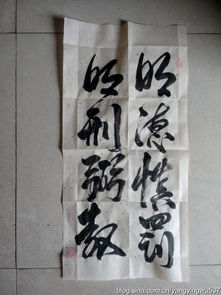 明德慎罚
明刑弼教
blog.sina.com.cn/yangyingwu537